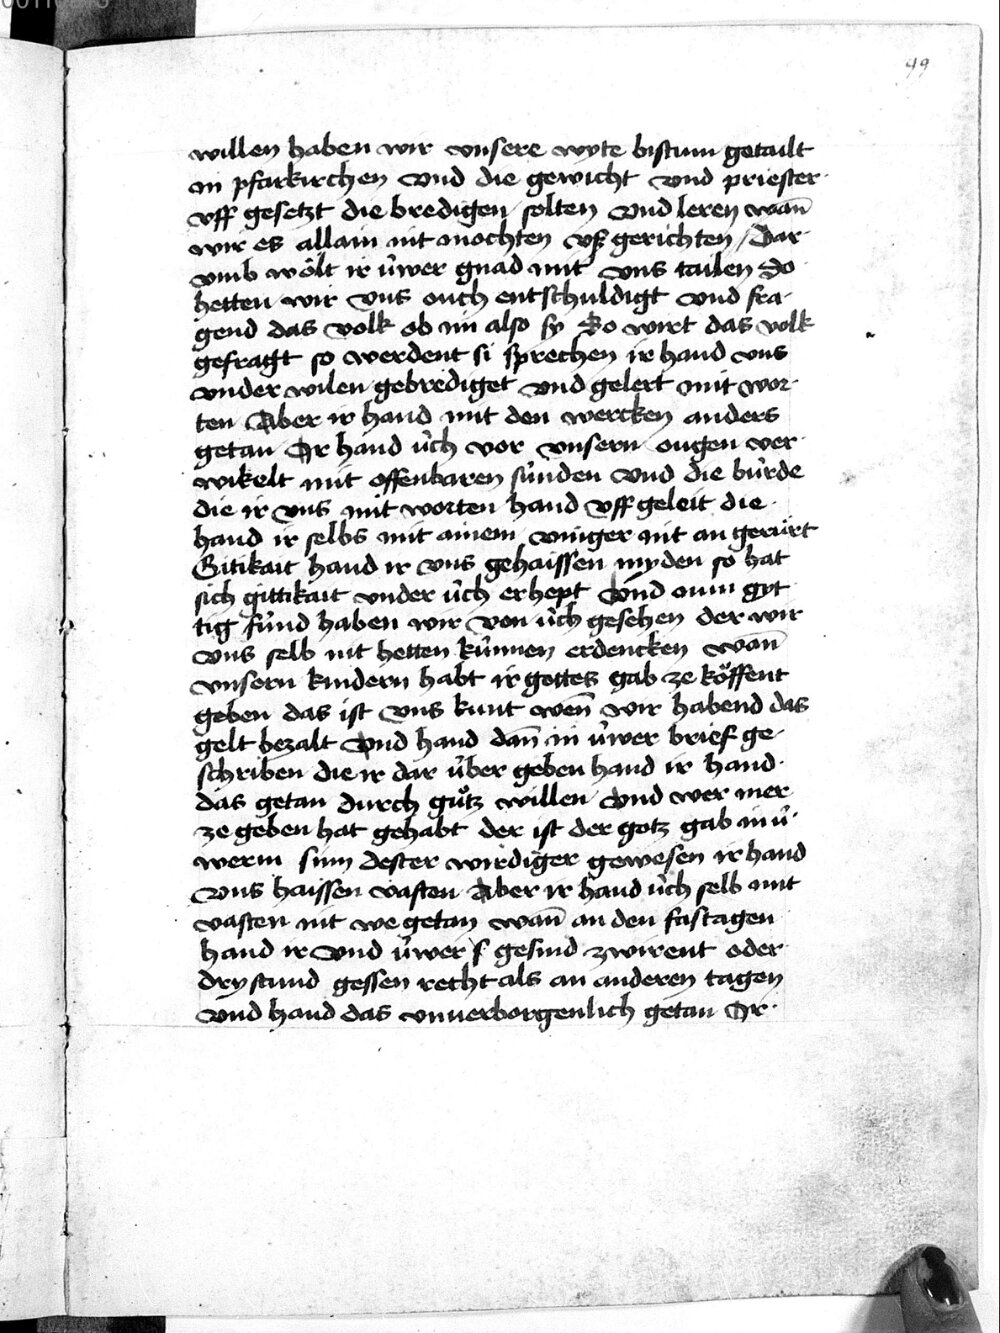 49
willen haben wir vnsere wyte bistum getailt
in pfarkirchen vnd die gewicht vnd priester
vff gesetzt die bredigen solten vnd leren wan̄
wir es allain nit mochten vß gerichten / Dar
vmb wölt ir ẘwer gnad mit vns tailen So
hetten wir vns ouch entschuldigt vnd fra
gend das volk ob im also sy So wirt das volk
gefragt so werdent si sprechen ir hand vns
vnder wilen gebrediget vnd gelert mit wor
ten Aber ir hand mit den wercken anders
getan Ir hand u̇ch vor vnsern ougen ver
wikelt mit offenbaren su̇nden vnd die bu̇rde
die ir vns mit worten hand vff geleit die
hand ir selbs mit ainem viniger nit an geru̇rt
Gitikait hand ir vns gehaissen myden so hat
sich gittikait vnder u̇ch erhept Vnd nun gyt
tig fu̇nd haben wir von u̇ch gesehen der wir
vns selb nit hetten ku̇nnen erdencken wan̄
vnsern kindern habt ir gottes gab ze köffent
geben das ist vns kunt wen̄ wir habend das
gelt bezalt Vnd hand dan̄ in u̇wer brief ge
schriben die ir dar u̇ber geben hand ir hand
das getan durch gůtz willen Vnd wer mer
ze geben hat gehabt der ist der gotz gab in u̇
werm sinn dester wirdiger gewesen ir hand
vns haissen vasten Aber ir hand u̇ch selb mit
vasten nit we getan wan̄ an den fastagen
hand ir vnd u̇wer gesind zwirent oder
drystund gessen recht als an anderen tagen
vnd hand das vnuerborgenlich getan Ir